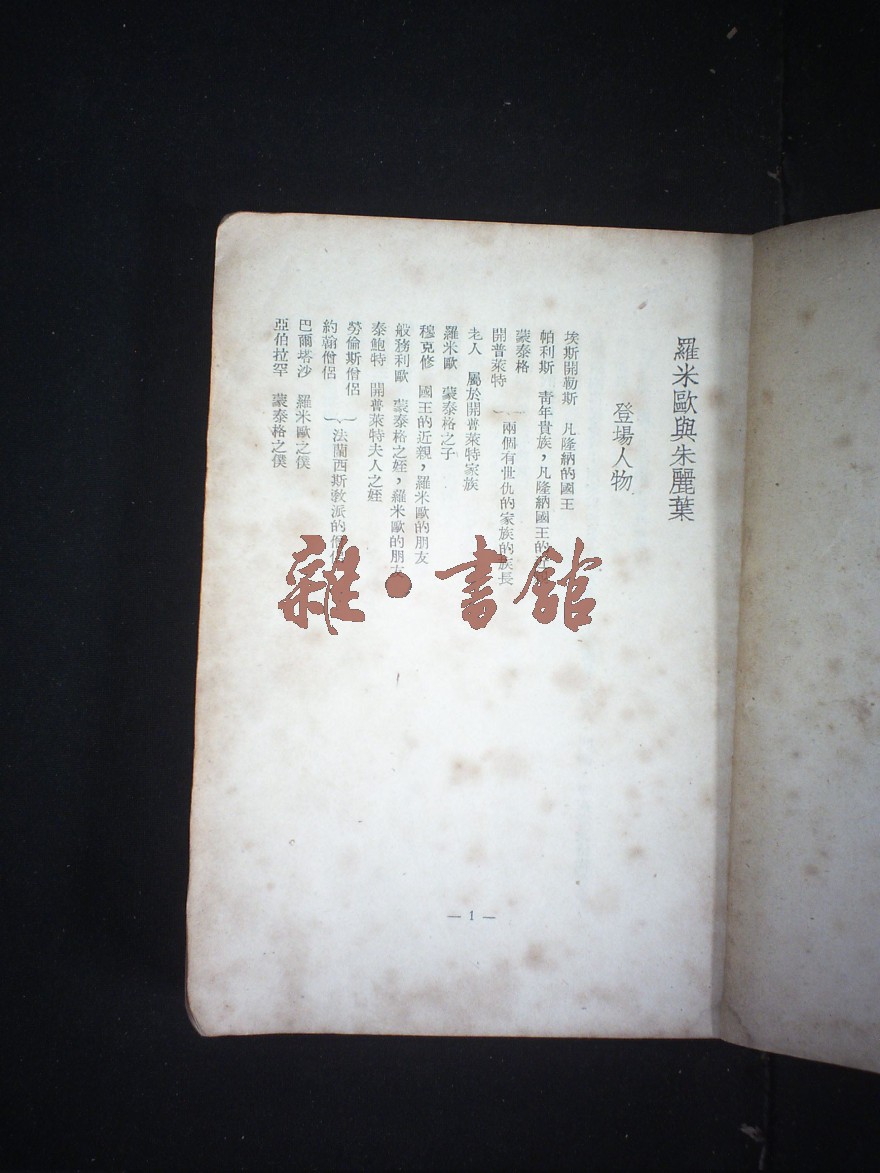 羅米歐與朱麗葉
登場人物
埃斯開勒斯 凡隆納的國王
帕利斯 青年貴族，凡隆納國王的
蒙泰格
開普萊特 兩個有世仇的家族的族長
老人 屬於開普萊特家族
羅米歐 蒙泰格之子
穆克修 國王的近親，羅米歐的朋友
般務利歐 蒙泰格之姪，羅米歐的朋友
泰鮑特 開普萊特夫人之姪
勞倫斯僧侶
約翰僧侶 法蘭西斯教派的
巴爾塔沙 羅米歐之僕
亞伯拉罕 蒙泰格之僕
— 1 —
雜·書館